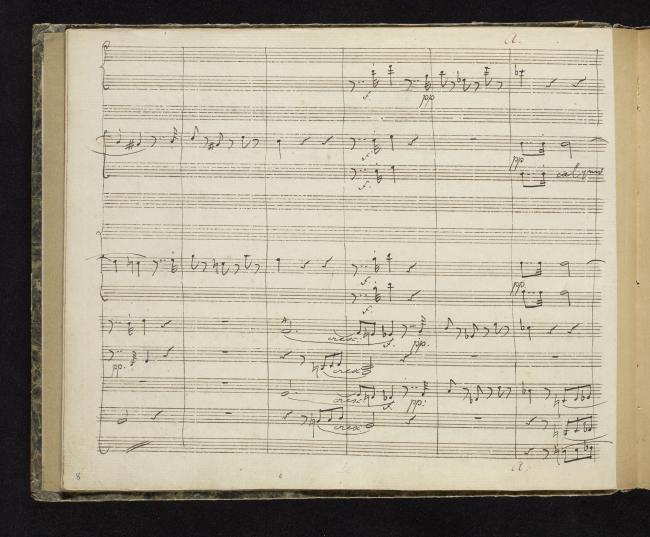 A.
f.
pp
f.
pp
f.
f.
pp.
f.
cresc:
f.
pp.
pp.
cresc
cresc:
f.
pp:
cresc
A.
8